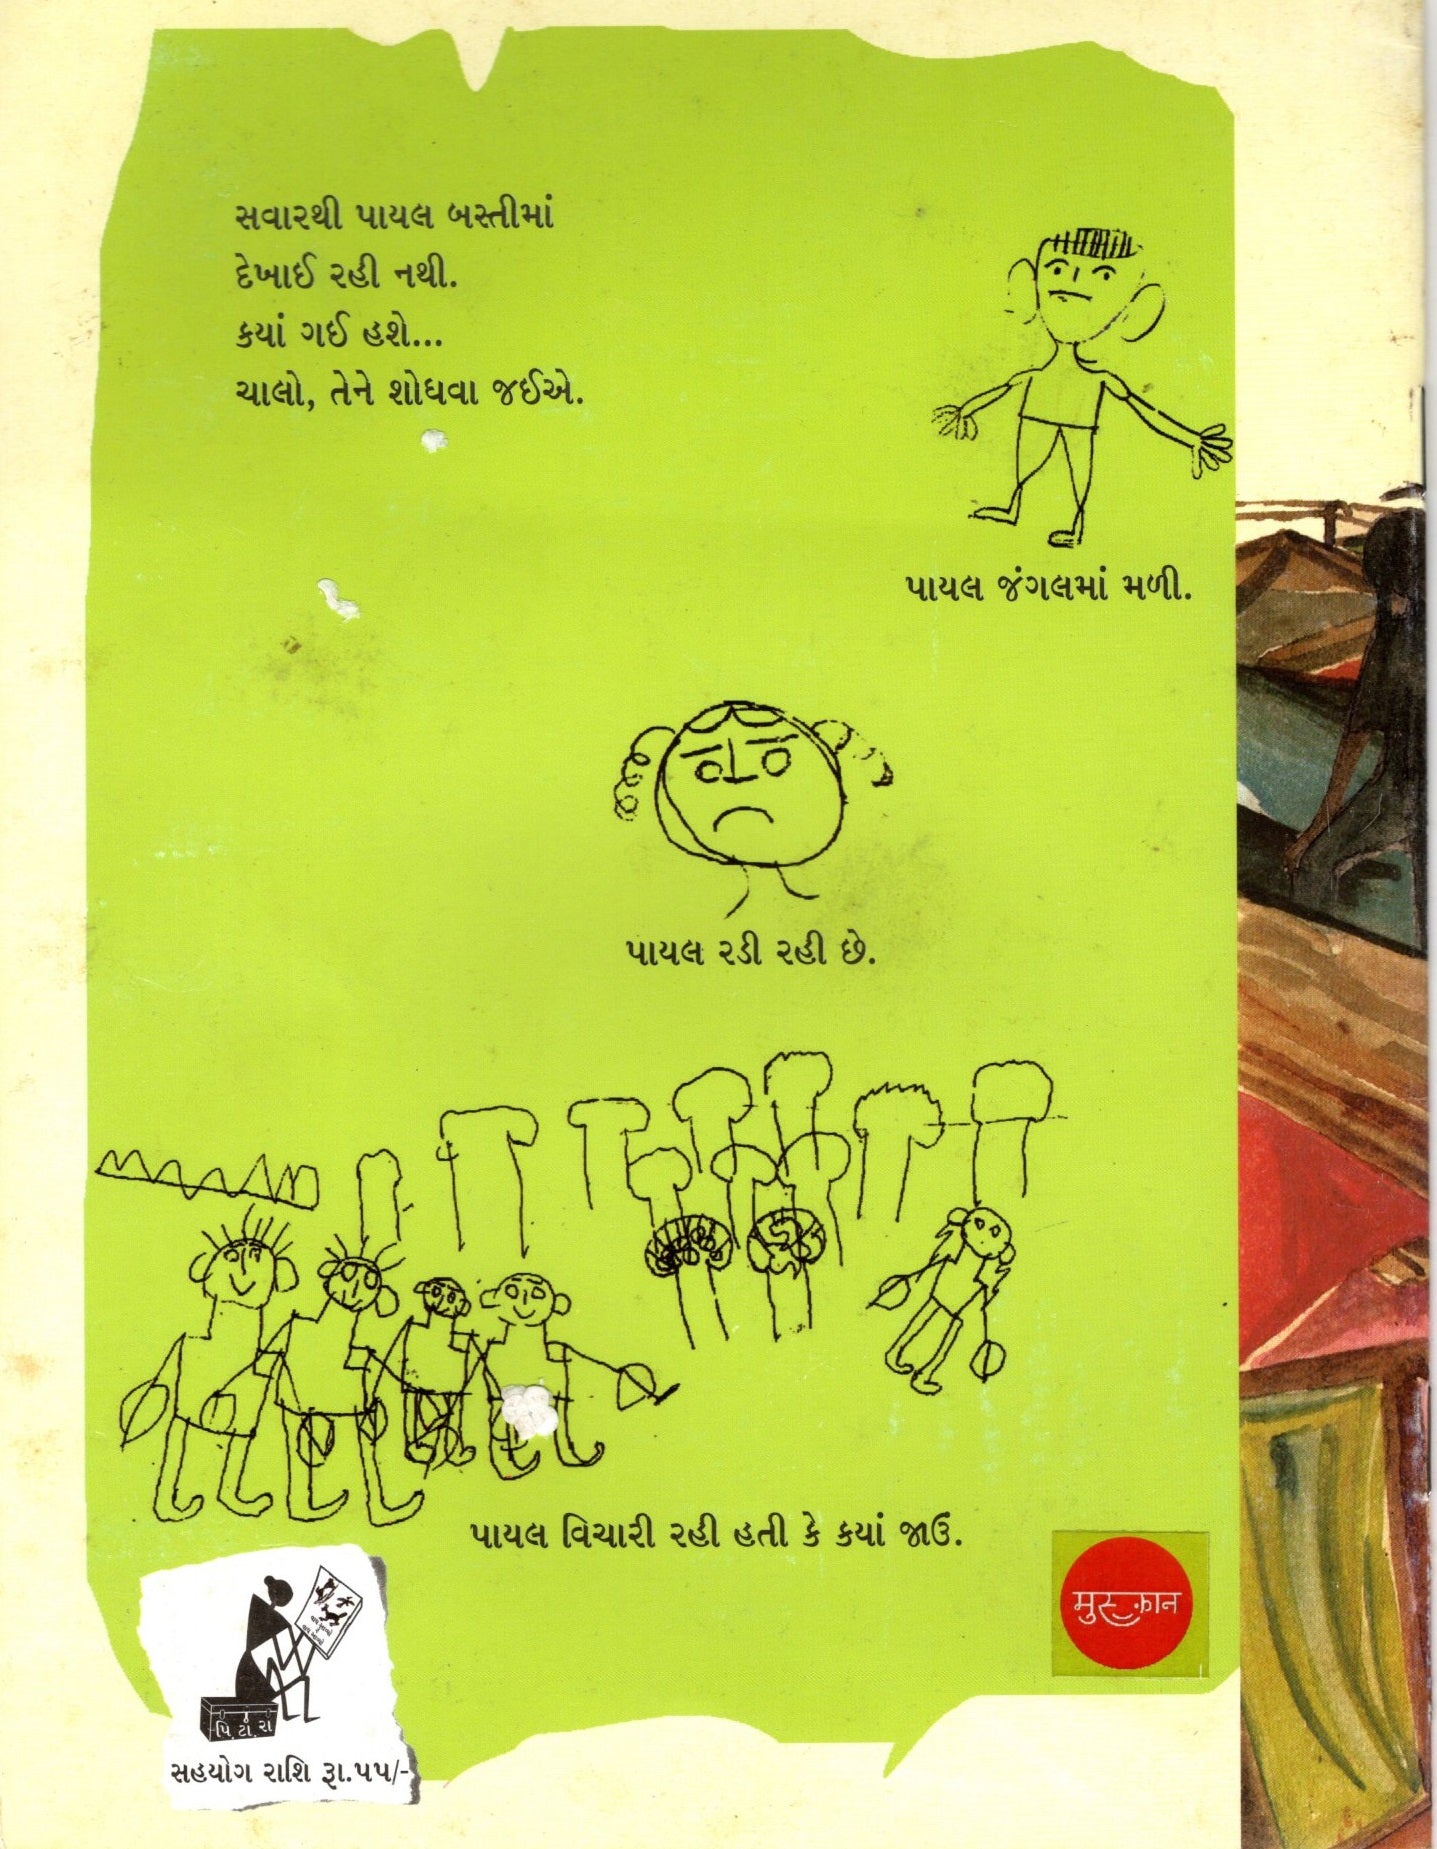 સવારથી પાયલ બસ્તીમાં
દેખાઈ રહી નથી.
કયાં ગઈ હશે...
ચાલો, તેને શોધવા જઈએ.
પાયલ જંગલમાં મળી.
પાયલ રડી રહી છે.
પાયલ વિચારી રહી હતી કે કયાં જાઉં.
मुस्कान
પિ.ટા.રા
સહયોગ રાશિ રૂા.૫૫/-